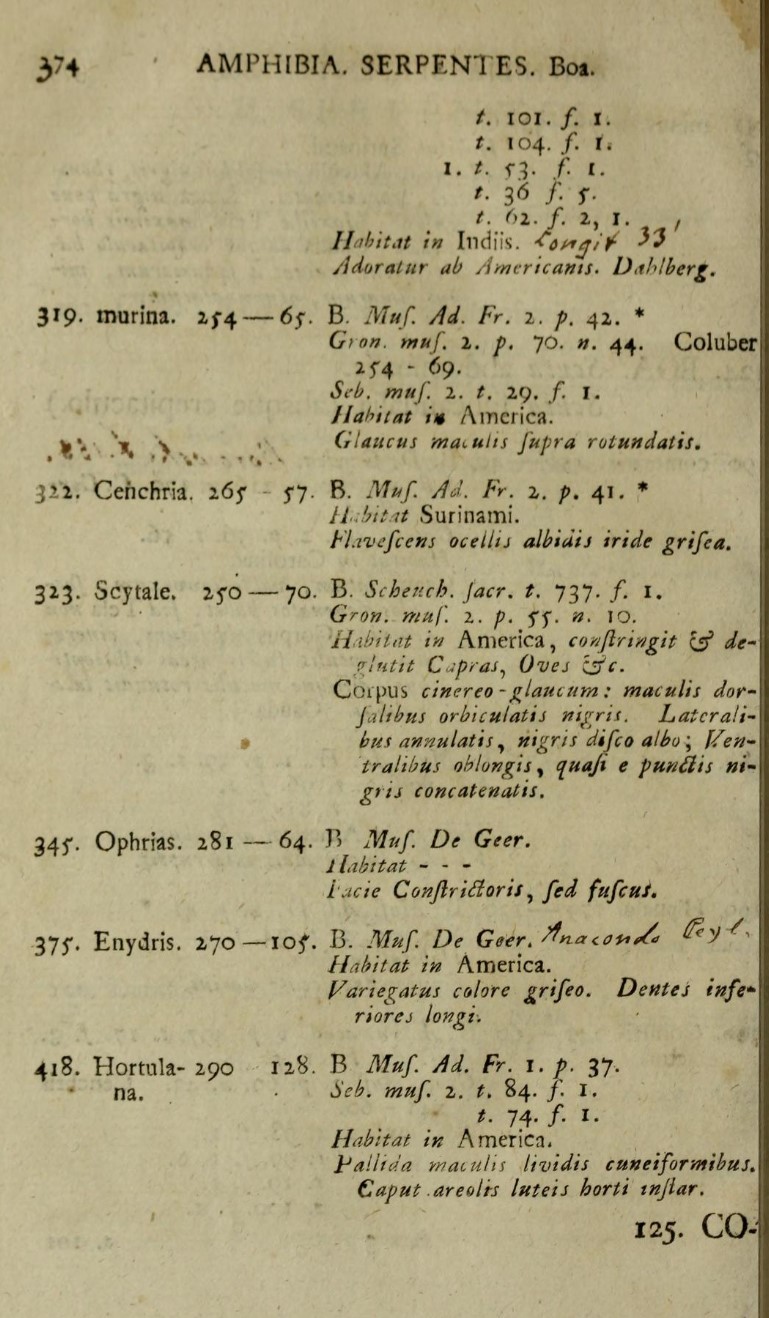 374 AMPHIBIA. SERPENTES. Boa.
t. 101. f. 1.
t. 104. f. 1.
1. t. 53. f. 1.
t. 36 f. 5.
t. 62. f. 2, 1.
Habitat in Indiis. Longit 33
Adoratur ab Americanis. Dahlberg.
319. murina. 254 — 65. B. Muſ. Ad. Fr. 2. p. 42. *
Gron. muſ. 2. p. 70. n. 44. Coluber
254 - 69.
Seb. muſ. 2. t. 29. f. 1.
Habitat in America.
Glaucus maculis ſupra rotundatis.
322. Cenchria. 265 - 57. B. Muſ. Ad. Fr. 2. p. 41. *
Habitat Surinami.
Flaveſcens ocellis albidis iride griſea.
323. Scytale. 250 — 70. B. Scheuch. ſacr. t. 737. f. 1.
Gron. muſ. 2. p. 55. n. 10.
Habitat in America, conſtringit & de-
glutit Capras, Oves &c.
Corpus cinereo-glaucum: maculis dor-
ſalibus orbiculatis nigris. Laterali-
bus annulatis, nigris diſco albo; Ven-
tralibus oblongis, quaſi e punctis ni-
gris concatenatis.
345. Ophrias. 281 — 64. B Muſ. De Geer.
Habitat - - -
Facie Conſtrictoris, ſed fuſcus.
375. Enydris. 270 — 105. B. Muſ. De Geer. Anaconda
Habitat in America.
Variegatus colore griſeo. Dentes infe-
riores longi.
418. Hortula- 290 128. B Muſ. Ad. Fr. 1. p. 37.
na. Seb. muſ. 2. t. 84. f. 1.
t. 74. f. 1.
Habitat in America.
Pallida maculis lividis cuneiformibus.
Caput areolis luteis horti inſtar.
125. CO-